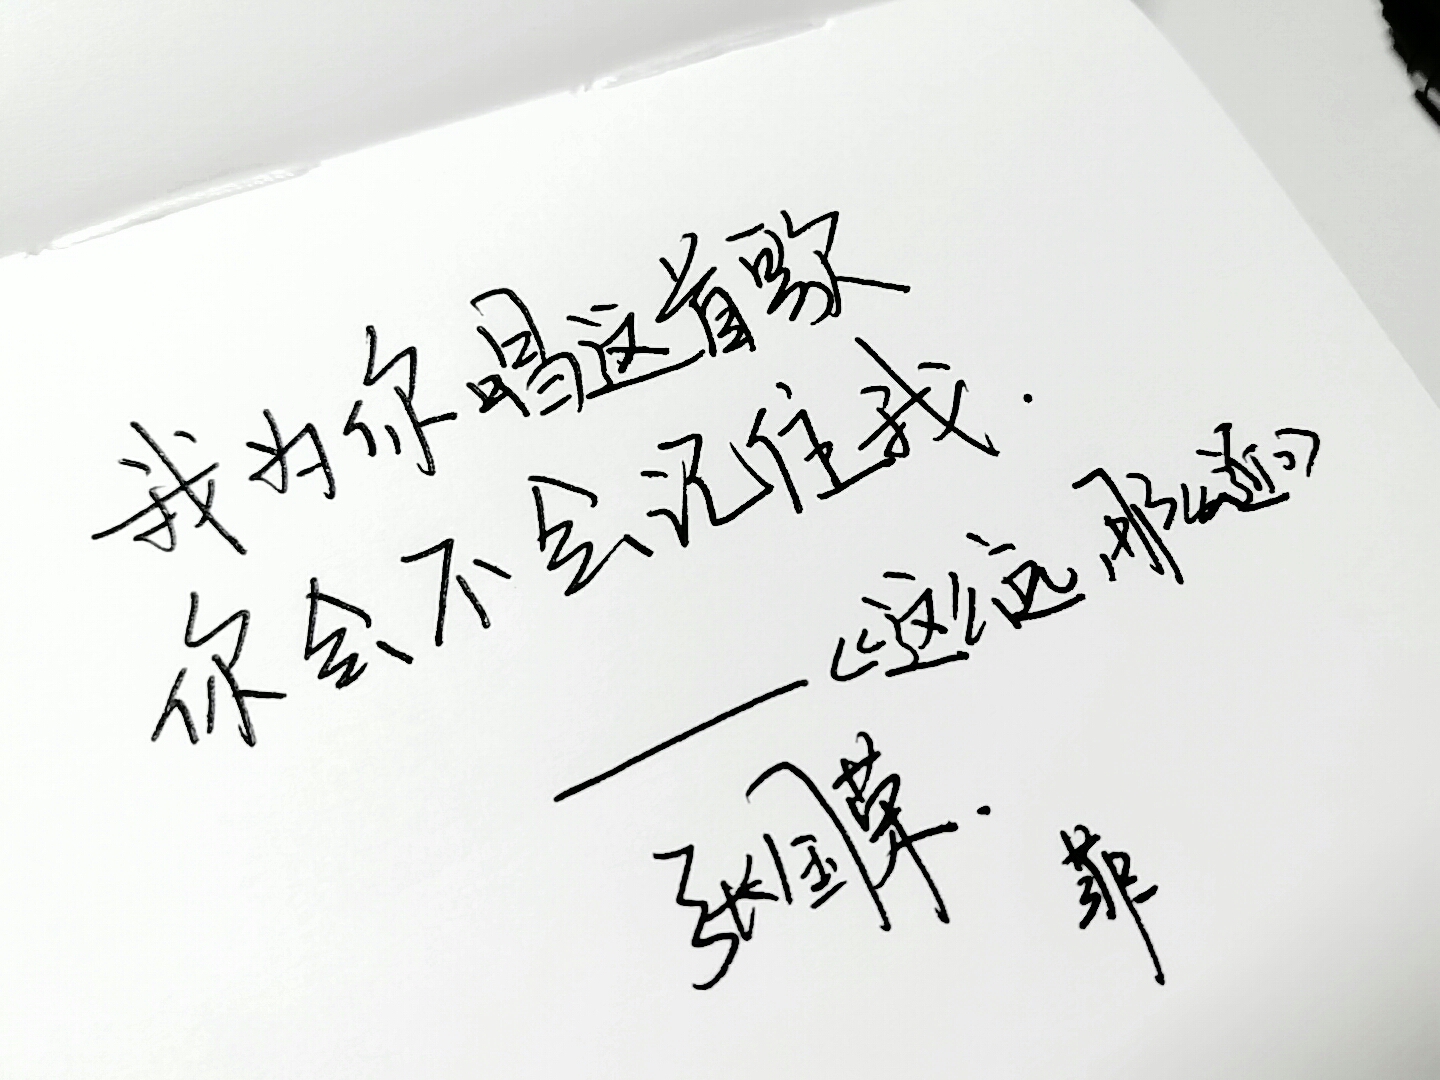 我为你唱这首歌
你会不会记住我.
——《这么远那么近》
张国荣.
菲